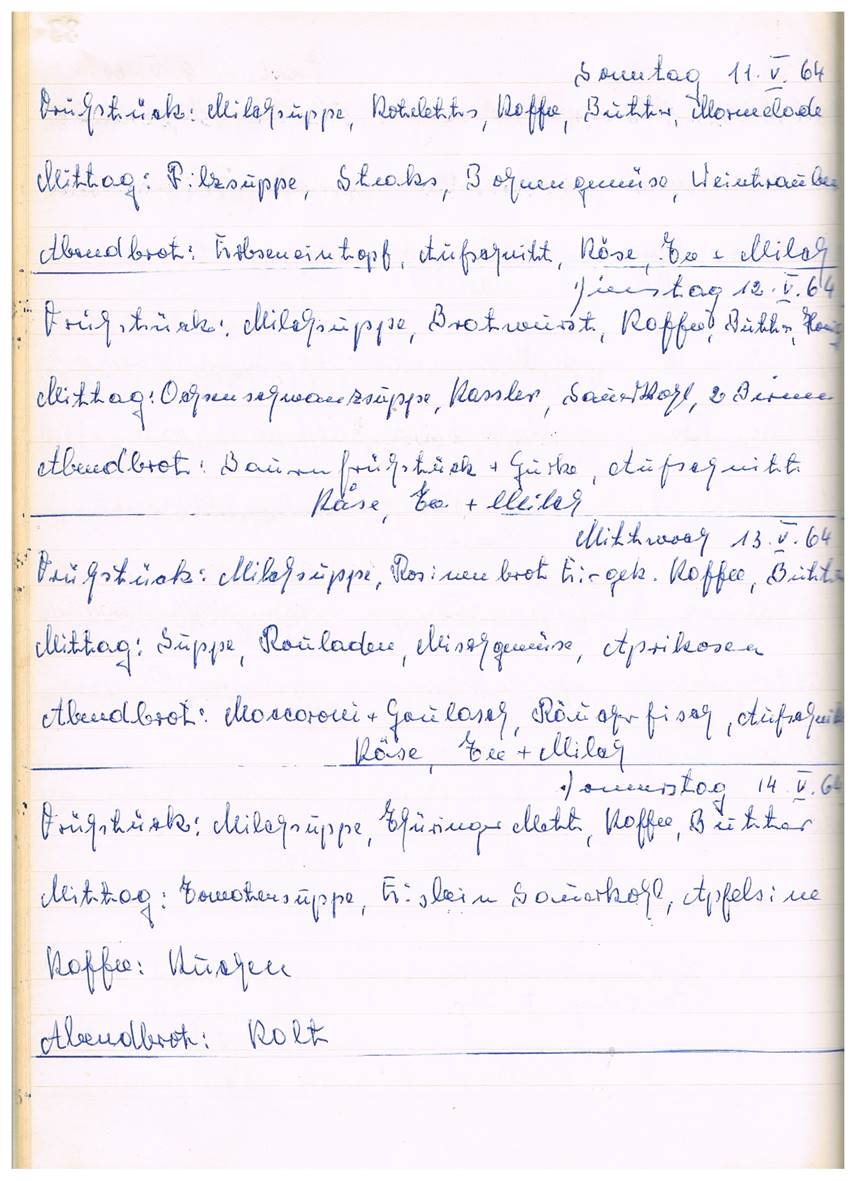 Sonntag 11. V. 64
Frühstück: Milchsuppe, Koteletts, Kaffee, Butter, Marmelade
Mittag: Pilzsuppe, Steaks, Bohnengemüse, Weintrauben
Abendbrot: Erbseneintopf, Aufschnitt, Käse, Tee + Milch
Dienstag 12. V. 64
Frühstück: Milchsuppe, Bratwurst, Kaffee, Butter, Honig
Mittag: Ochsenschwanzsuppe, Kassler, Sauerkohl, 2 Birnen
Abendbrot: Bauernfrühstück + Gurke, Aufschnitt
Käse, Tee + Milch
Mittwoch 13. V. 64
Frühstück: Milchsuppe, Rosinenbrot Ei-gek. Kaffee, Butter
Mittag: Suppe, Rouladen, Mischgemüse, Aprikosen
Abendbrot: Maccaroni + Goulasch, Räucherfisch, Aufschnitt
Käse, Tee + Milch
Donnerstag 14. V. 64
Frühstück: Milchsuppe, Thüringer Mett, Kaffee, Butter
Mittag: Tomatensuppe, Eisbein Sauerkohl, Apfelsine
Kaffee: Kuchen
Abendbrot: Kalt